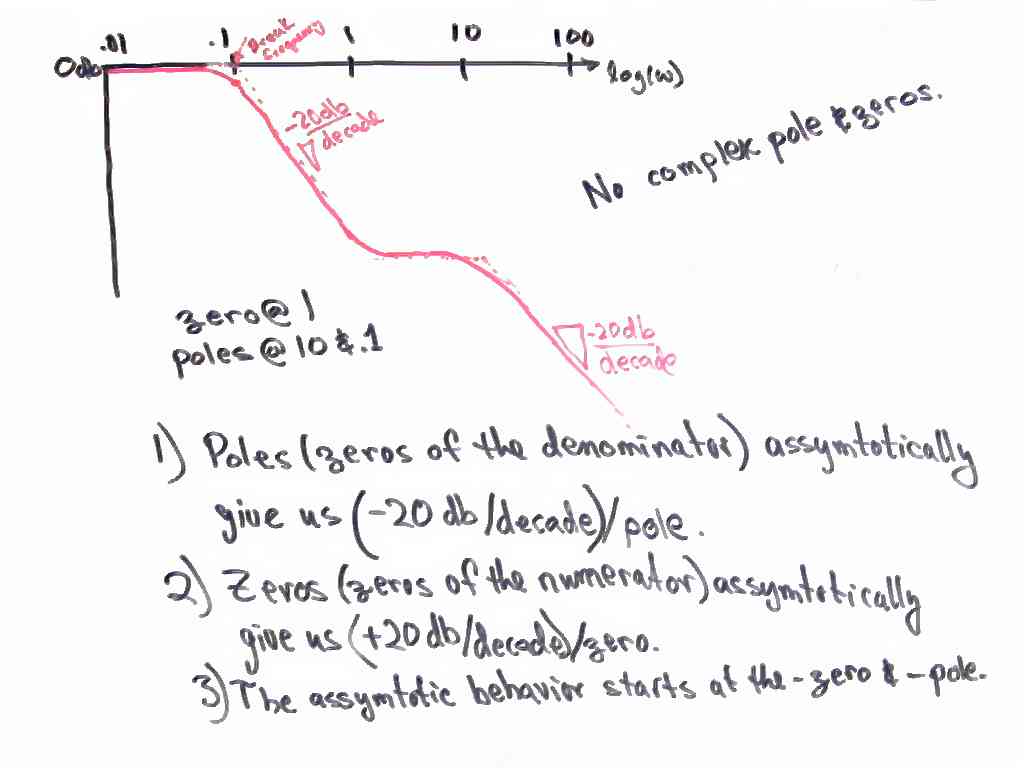 .01 .1 1 10 100
Break
frequency
0db
log(w)
-20db
decade
No complex pole & zeros.
zero @ 1
poles @ 10 & .1
-20db
decade
1) Poles (zeros of the denominator) assymtotically
give us (-20 db/decade)/pole.
2) Zeros (zeros of the numerator) assymtotically
give us (+20 db/decade)/zero.
3) The assymtotic behavior starts at the -zero & -pole.